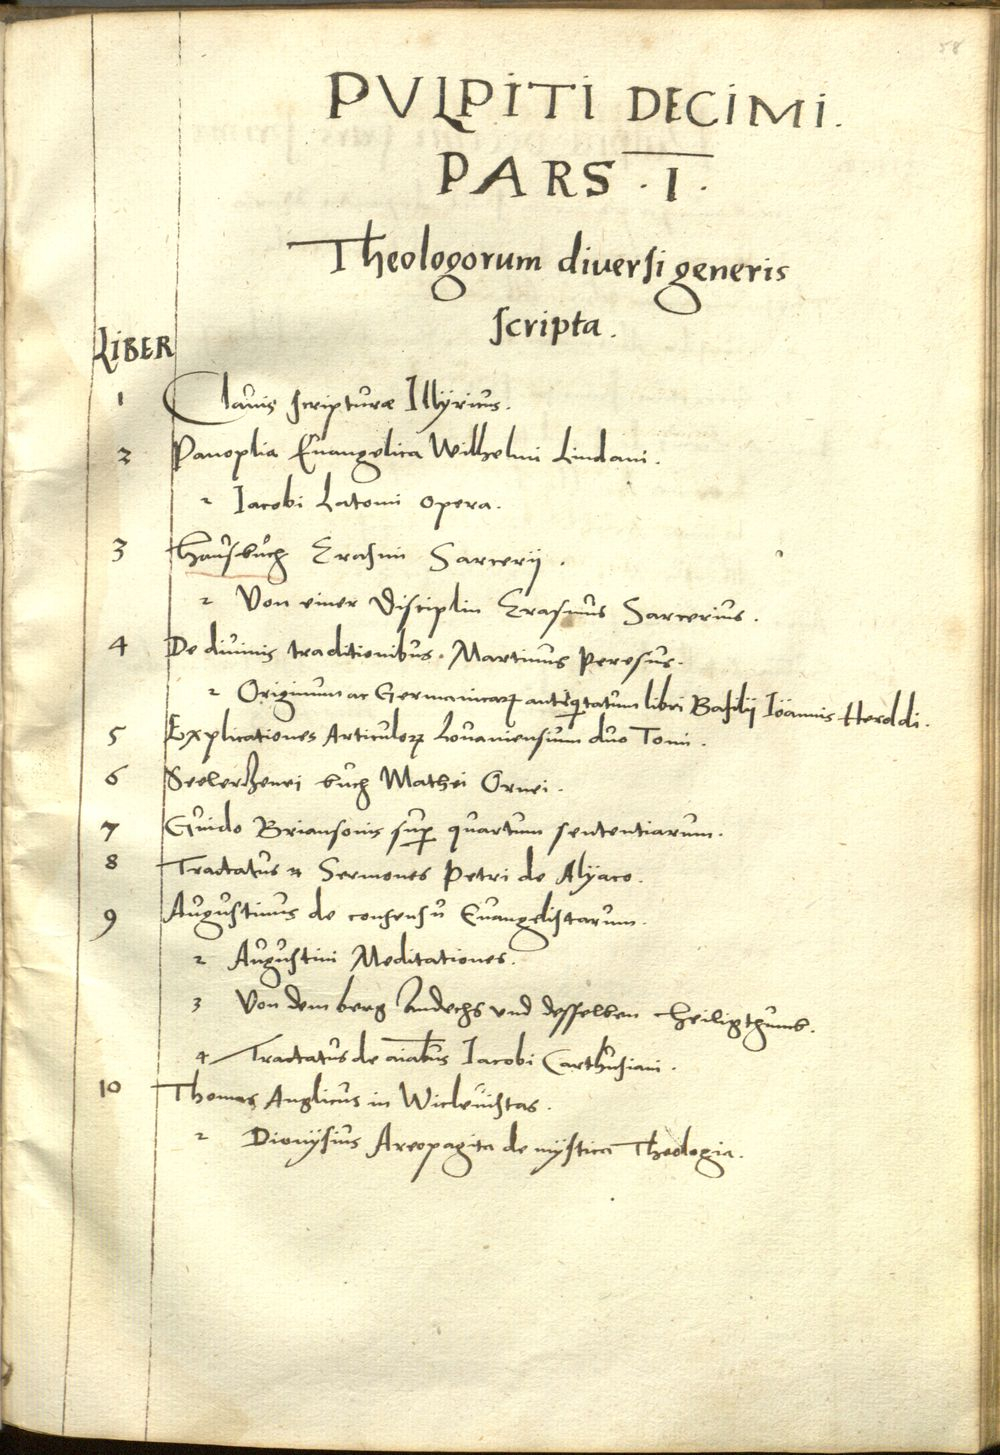 58
PVLPITI DECIMI.
PARS . I .
Theologorum diversi generis
scripta.
LIBER
1 Clauis scripturæ Illÿricus.
2 Panoplia Euangelica Wilhelmi Lindani.
2 Iacobi Latomi opera.
3 Hausbuch Erasmi Sarcerij.
2 Von einer Disciplin Erasmus Sarcerius.
4 De diuinis traditionibus. Martinus Peresus.
2 Originum ac Germanicaꝝ antiqͥtatum libri Basilij Iöannis Herddi.
5 Explicationes Articuloꝝ Louaniensium duo Tomi.
6 buch Mathei
7 Guido Briansonis suꝑ quartum sententiarum.
8 Tractatus et Sermones Petri de Alÿaco.
9 Augustinus de consensu Euangelistarum.
2 Augustini Meditationes.
3 Von dem berg Andechs und desselben Heiligthumb.
4 Tractatus de aīabus Iacobi Carthusiani.
10 Thomas Anglicus in Wicleuistas.
2 Dionÿsius Areopagita de mÿstica Theologia.